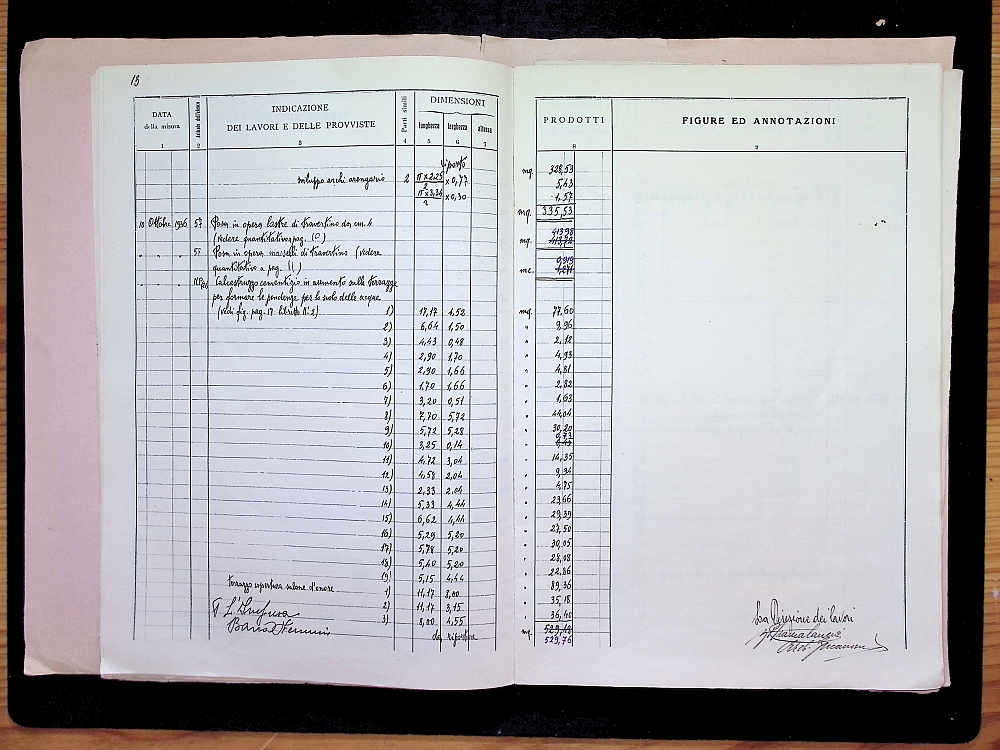 13
DATA della misura
Articolo dell'elenco
INDICAZIONE
DEI LAVORI E DELLE PROVVISTE
Parti simili
DIMENSIONI
lunghezza larghezza altezza
PRODOTTI
FIGURE ED ANNOTAZIONI
1 2 3 4 5 6 7 8 9
riporto mq. 328,53
sviluppo archi arengario 2 π x 2.25 / 2 x 0,77 5,43
π x 3,34 / 2 x 0,30 1,57
mq. 335,53
18 Ottobre 1936 57 Posa in opera lastre di travertino da cm. 4
(vedere quantitativo pag. 10) mq.
" " " 58 Posa in opera masselli di travertino (vedere
quantitativo a pag. 11) mc. 0,919
Calcestruzzo cementizio in aumento sulle terrazze
per formare le pendenze per lo scolo delle acque
(vedi fig. pag. 17 libretto N. 2) 1) 17,17 4,52 mq. 77,60
2) 6,64 1,50 " 9,96
3) 4,43 0,48 " 2,12
4) 2,90 1,70 " 4,93
5) 2,90 1,66 " 4,81
6) 1,70 1,66 " 2,82
7) 3,20 0,51 " 1,63
8) 7,70 5,72 " 44,04
9) 5,72 5,28 " 30,20
10) 3,25 0,14 "
11) 4,72 3,04 " 14,35
12) 4,58 2,04 " 9,34
13) 2,33 2,04 " 4,75
14) 5,33 4,44 " 23,66
15) 6,62 4,44 " 29,39
16) 5,29 5,20 " 27,50
17) 5,78 5,20 " 30,05
18) 5,40 5,20 " 28,08
19) 5,15 4,44 " 22,86
terrazzo copertura salone d'onore 1) 11,17 8,00 " 89,36
2) 11,17 3,15 " 35,18
3) 8,00 4,55 " 36,40
da riportare mq. 529,42
529,76
L'Impresa
La Direzione dei lavori